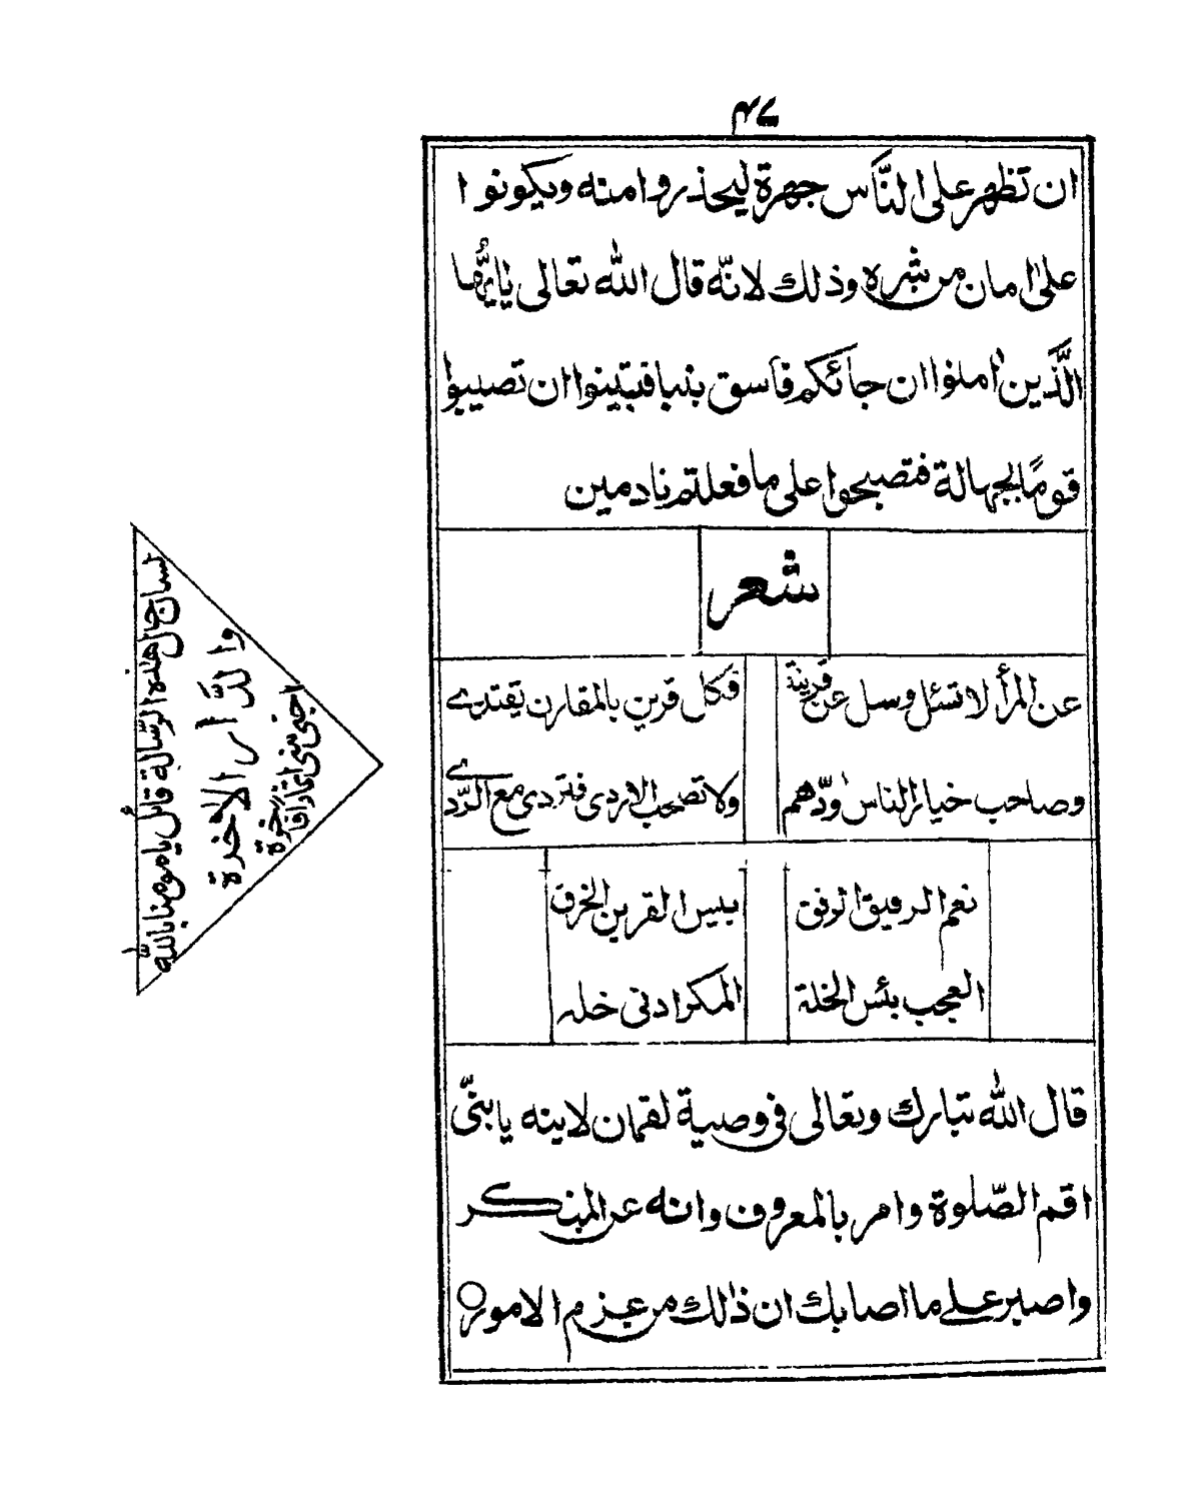 ۴۷
ان تظهر على النّاس جهرة ليحذروا منه ويكونوا
على امان من شره وذلك لانّه قال الله تعالى يايّها
الّذين امنوا ان جائكم فاسق بنبا فتبينوا ان تصيبوا
قومًا بجهالة فتصبحوا على ما فعلتم نادمين
شعر
عن المرأ لا تسئل وسل عن قرينة فكل قرين بالمقارن يقتدي
وصاحب خيار الناس اودّهم ولا تصحب الاردى فتردى مع الرّدي
نعم الرفيق الرفق بيس القرين الخرق
العجب بئس الخلة المكر ادنى خله
قال الله تبارك وتعالى فى وصية لقمان لابنه يا بنىّ
اقم الصّلوة وامر بالمعروف وانه عن المنكر
واصبر على ما اصابك ان ذالك من عزم الامور
لسان حال هذه الرّسالة قائل يا مومنا بالله
والدّار الاخرة